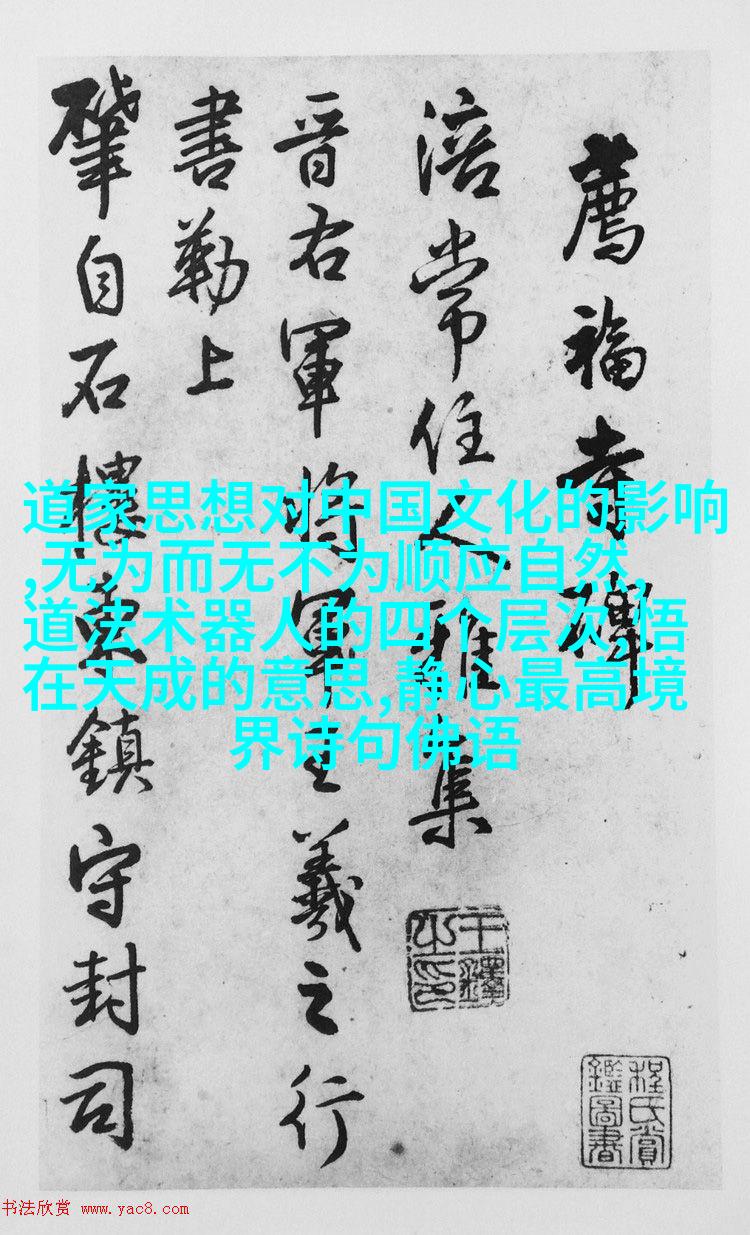 薦福寺碑
涪常住人雅集
晉右軍將軍王羲之行
書勒上
肇自石樓鎮守封司
道家思想对中国文化的影响
,无为而无不为顺应自然,
道法术器人的四个层次,悟
在天成的意思,静心最高境
界诗句佛语
王鐸之印
程氏賞鑑圖書
书法欣赏 www.yac8.com